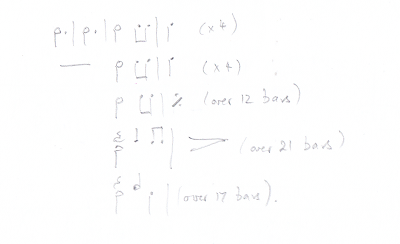 (x4)
(x4)
(over 12 bars)
(over 21 bars)
(over 17 bars).